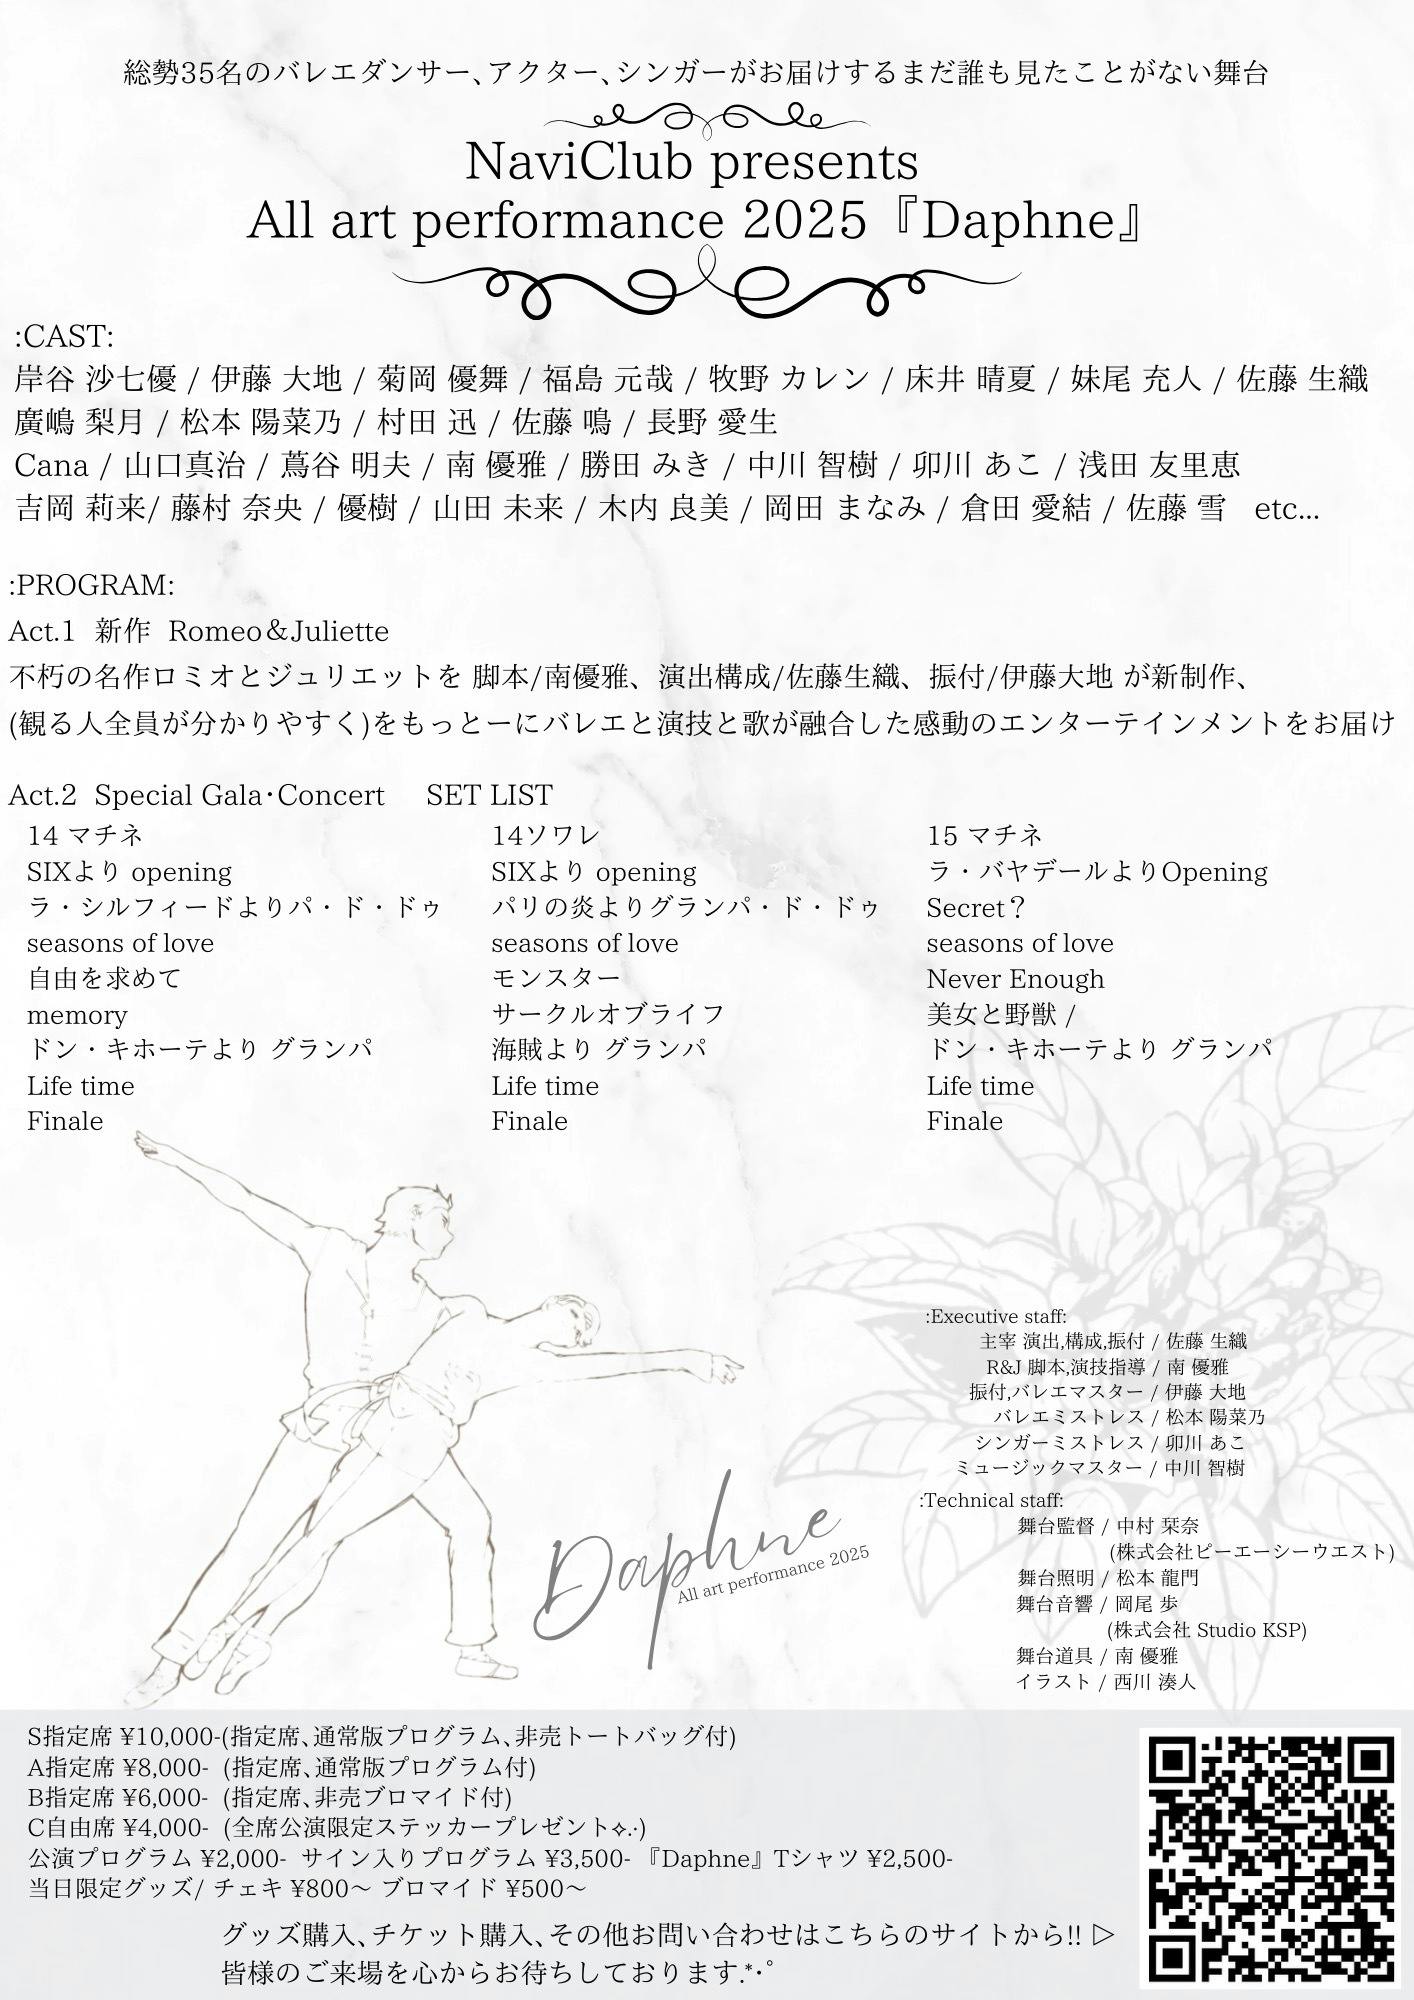 総勢35名のバレエダンサー、アクター、シンガーがお届けするまだ誰も見たことがない舞台
NaviClub presents
All art performance 2025『Daphne』
:CAST:
岸谷 沙七優 / 伊藤 大地 / 菊岡 優舞 / 福島 元哉 / 牧野 カレン / 床井 晴夏 / 妹尾 充人 / 佐藤 生織
廣嶋 梨月 / 松本 陽菜乃 / 村田 迅 / 佐藤 鳴 / 長野 愛生
Cana / 山口真治 / 蔦谷 明夫 / 南 優雅 / 勝田 みき / 中川 智樹 / 卯川 あこ / 浅田 友里恵
吉岡 莉来/ 藤村 奈央 / 優樹 / 山田 未来 / 木内 良美 / 岡田 まなみ / 倉田 愛結 / 佐藤 雪 etc...
:PROGRAM:
Act.1 新作 Romeo＆Juliette
不朽の名作ロミオとジュリエットを 脚本/南優雅、演出構成/佐藤生織、振付/伊藤大地 が新制作、
(観る人全員が分かりやすく)をもっとーにバレエと演技と歌が融合した感動のエンターテインメントをお届け
Act.2 Special Gala・Concert SET LIST
14 マチネ
SIXより opening
ラ・シルフィードよりパ・ド・ドゥ
seasons of love
自由を求めて
memory
ドン・キホーテより グランパ
Life time
Finale
14ソワレ
SIXより opening
パリの炎よりグランパ・ド・ドゥ
seasons of love
モンスター
サークルオブライフ
海賊より グランパ
Life time
Finale
15 マチネ
ラ・バヤデールよりOpening
Secret？
seasons of love
Never Enough
美女と野獣 /
ドン・キホーテより グランパ
Life time
Finale
:Executive staff:
主宰 演出,構成,振付 / 佐藤 生織
R&J 脚本,演技指導 / 南 優雅
振付,バレエマスター / 伊藤 大地
バレエミストレス / 松本 陽菜乃
シンガーミストレス / 卯川 あこ
ミュージックマスター / 中川 智樹
:Technical staff:
舞台監督 / 中村 栞奈
(株式会社ピーエーシーウエスト)
舞台照明 / 松本 龍門
舞台音響 / 岡尾 歩
(株式会社 Studio KSP)
舞台道具 / 南 優雅
イラスト / 西川 湊人
Daphne
All art performance 2025
S指定席 ¥10,000-(指定席、通常版プログラム、非売トートバッグ付)
A指定席 ¥8,000- (指定席、通常版プログラム付)
B指定席 ¥6,000- (指定席、非売ブロマイド付)
C自由席 ¥4,000- (全席公演限定ステッカープレゼント✧.·)
公演プログラム ¥2,000- サイン入りプログラム ¥3,500- 『Daphne』Tシャツ ¥2,500-
当日限定グッズ/ チェキ ¥800〜 ブロマイド ¥500〜
グッズ購入、チケット購入、その他お問い合わせはこちらのサイトから!! ▷
皆様のご来場を心からお待ちしております.*･ﾟ